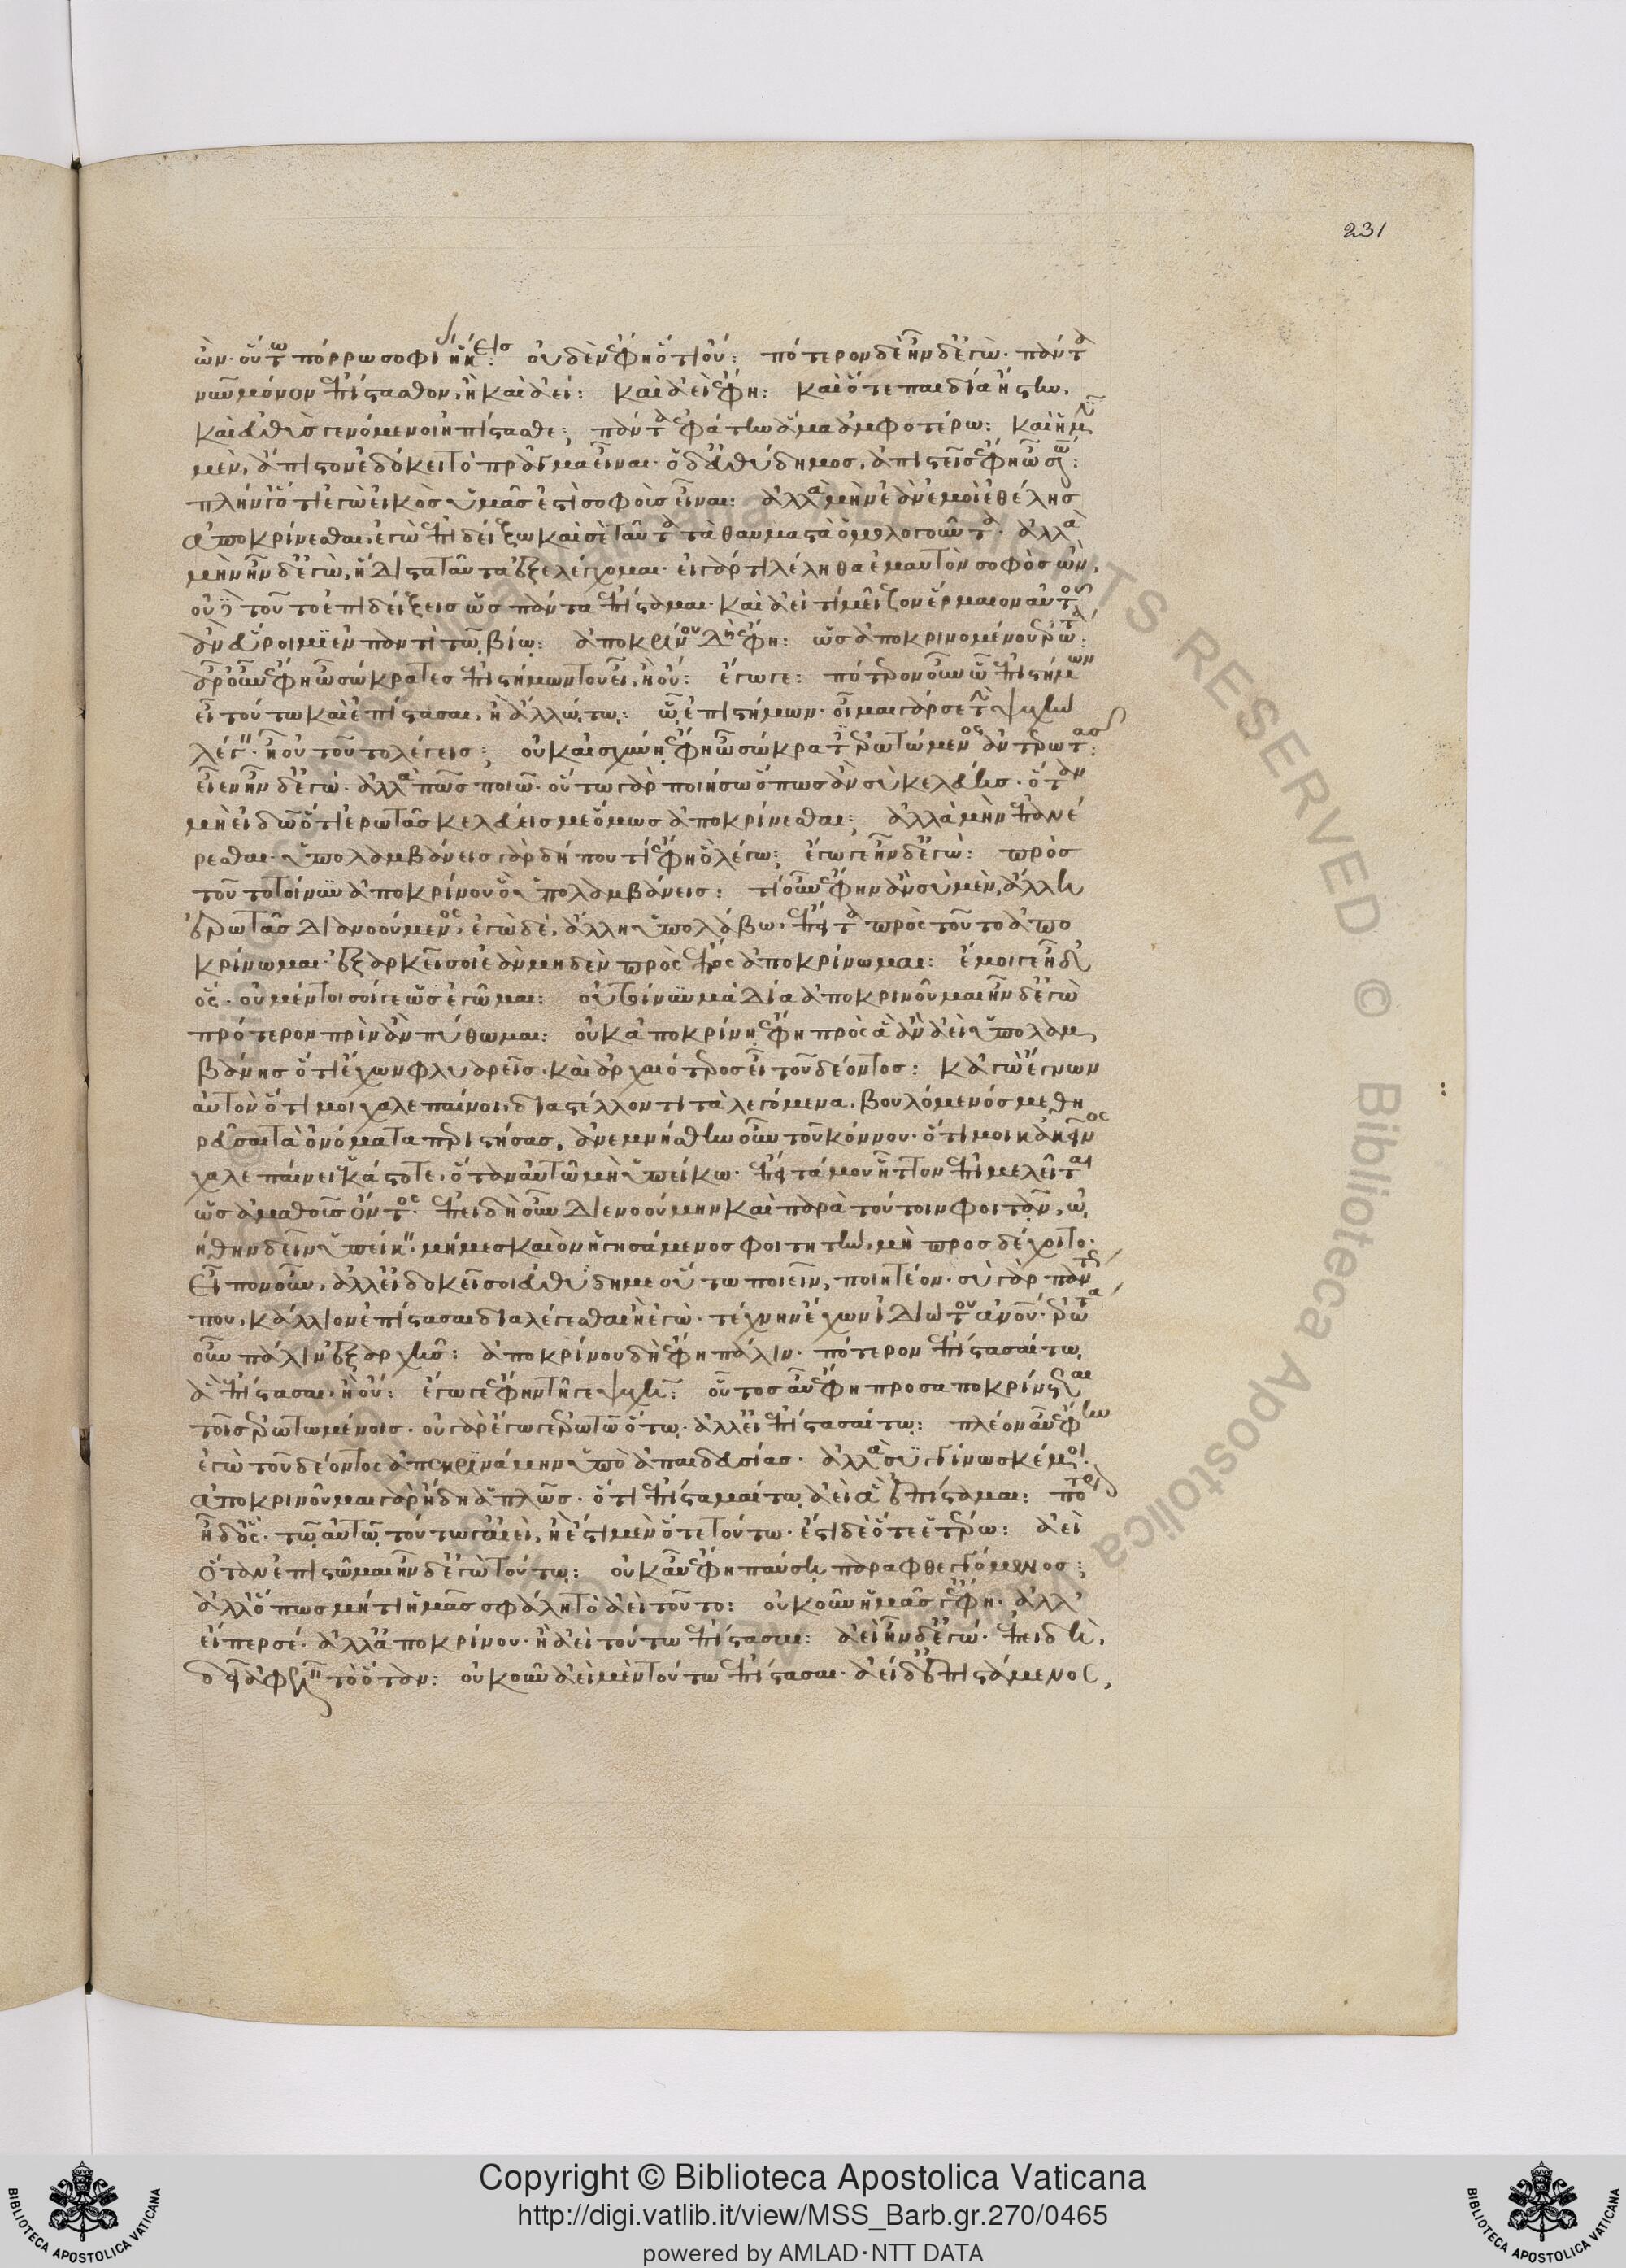 ὤν· οὕτω πόρρω σοφίας ἥκεις: οὐδὲν ἔφη ὅτι οὔ: πότερον δὲ ἦν δ' ἐγώ· πάντα
νῦν μόνον ἐπίστασθον, ἢ καὶ ἀεί: καὶ ἀεὶ ἔφη: καὶ ὅτε παιδία ἤστην,
καὶ εὐθὺς γενόμενοι ἠπίστασθε; πάντα ἐφάτην ἅμα ἀμφοτέρω: καὶ ἡμῖν
μὲν, ἄπιστον ἐδόκει τὸ πρᾶγμα εἶναι· ὁ δ' εὐθύδημος, ἀπιστεῖς ἔφη ὦ σώκρατες:
πλήν γ' ὅτι ἐγὼ εἰκὸς ὑμᾶς ἐστὶ σοφοὺς εἶναι: ἀλλὰ μὴν ἐὰν ἐμοὶ ἐθέλῃς
ἀποκρίνεσθαι, ἐγὼ ἐπιδείξω καὶ σὲ ταῦτα τὰ θαυμαστὰ ὁμολογοῦντα· ἀλλὰ
μὴν ἦν δ' ἐγὼ, ἥδιστα ταῦτα ἐξελέγχομαι· εἰ γάρ τι λέληθα ἐμαυτὸν σοφὸς ὢν,
σὺ δὲ τοῦτο ἐπιδείξεις ὡς πάντα ἐπίσταμαι· καὶ ἀεὶ τί μεῖζον ἕρμαιον αὐτοῦ
ἂν εὕροιμι ἐν παντὶ τῷ βίῳ: ἀποκρίνου δὴ ἔφη: ὡς ἀποκρινομένου ἐρώτα:
ἆρ' οὖν ἔφη ὦ σώκρατες ἐπιστήμων του εἶ, ἢ οὔ: ἔγωγε: πότερον οὖν ᾧ ἐπιστήμων
εἶ τούτῳ καὶ ἐπίστασαι, ἢ ἄλλῳ τῳ: ᾧ ἐπιστήμων· οἶμαι γάρ σε τὴν ψυχὴν
λέγειν· ἢ οὐ τοῦτο λέγεις; οὐκ αἰσχύνῃ ἔφη ὦ σώκρατες ἐρωτώμενος ἀντερωτᾷς:
εἶεν ἦν δ' ἐγώ· ἀλλὰ πῶς ποιῶ· οὕτω γὰρ ποιήσω ὅπως ἂν σὺ κελεύῃς· ὅταν
μὴ εἰδῶ ὅτι ἐρωτᾷς κελεύεις με ὅμως ἀποκρίνεσθαι; ἀλλὰ μὴν ἐπανέ
ρεσθαι· ὑπολαμβάνεις γὰρ δήπου τί ἔφη ὃ λέγω; ἔγωγε ἦν δ' ἐγώ: πρὸς
τοῦτο τοίνυν ἀποκρίνου ὃ ὑπολαμβάνεις: τί οὖν ἔφην ἂν σὺ μὲν, ἄλλῃ
ἐρωτᾷς διανοούμενος, ἐγὼ δὲ, ἄλλῃ ὑπολάβω, ἔπειτα πρὸς τοῦτο ἀπο
κρίνωμαι· ἐξαρκεῖ σοι ἐὰν μηδὲν πρὸς ἔπος ἀποκρίνωμαι: ἔμοιγε ἦ δ'
ὅς· οὐ μέντοι σοί γε ὡς ἐγᾦμαι: οὐ τοίνυν μὰ δία ἀποκρινοῦμαι ἦν δ' ἐγὼ
πρότερον πρὶν ἂν πύθωμαι: οὐκ ἀποκρίνῃ ἔφη πρὸς ἃ ἂν ἀεὶ ὑπολαμ
βάνῃς ὅτι ἔχων φλυαρεῖς· καὶ ἀρχαιότερος εἶ τοῦ δέοντος: κἀγὼ ἔγνων
αὐτὸν ὅτι μοι χαλεπαίνοι, διαστέλλοντι τὰ λεγόμενα, βουλόμενός με θη
ρεῦσαι τὰ ὀνόματα περιστήσας, ἀνεμνήσθην οὖν τοῦ κόννου· ὅτι μοι κἀκεῖνος
χαλεπαίνει ἑκάστοτε, ὅταν αὐτῷ μὴ ὑπείκω· ἔπειτά μου ἧττον ἐπιμελεῖται
ὡς ἀμαθοῦς ὄντος· ἐπειδὴ οὖν διενοούμην καὶ παρὰ τούτοιν φοιτᾶν, ὠ
ήθην δεῖν ὑπείκειν· μή με σκαιὸν ἡγησάμενος φοιτητὴν, μὴ προσδέχοιτο·
εἶπον οὖν, ἀλλ' εἰ δοκεῖ σοι εὐθύδημε οὕτω ποιεῖν, ποιητέον· σὺ γὰρ πάντως
που, κάλλιον ἐπίστασαι διαλέγεσθαι ἢ ἐγὼ· τέχνην ἔχων ἰδιώτου ἀνοῦ· ἐρώτα
οὖν πάλιν ἐξ ἀρχῆς: ἀποκρίνου δὴ ἔφη πάλιν· πότερον ἐπίστασαί τῳ
ἃ ἐπίστασαι, ἢ οὔ: ἔγωγε ἔφην τῇ γε ψυχῇ: οὗτος αὖ ἔφη προσαποκρίνεται
τοῖς ἐρωτωμένοις· οὐ γὰρ ἔγωγε ἐρωτῶ ὅτῳ· ἀλλ' εἰ ἐπίστασαί τῳ: πλέον αὖ ἔφην
ἐγὼ τοῦ δέοντος ἀπεκρινάμην ὑπὸ ἀπαιδευσίας· ἀλλὰ συγγίνωσκέ μοι·
ἀποκρινοῦμαι γὰρ ἤδη ἁπλῶς· ὅτι ἐπίσταμαί τῳ ἀεὶ ἃ ἐπίσταμαι: πότερον
ἦ δ' ὅς· τῷ αὐτῷ τούτῳ γ' ἀεὶ, ἢ ἔστι μὲν ὅτε τούτῳ· ἔστι δὲ ὅτε ἑτέρῳ: ἀεὶ
ὅταν ἐπίστωμαι ἦν δ' ἐγὼ τούτῳ: οὐκ αὖ ἔφη παύσῃ παραφθεγγόμενος;
ἀλλ' ὅπως μή τι ἡμᾶς σφάλῃ τὸ ἀεὶ τοῦτο: οὐκοῦν ἡμᾶς γ' ἔφη· ἀλλ'
εἴπερ σέ· ἀλλ' ἀποκρίνου· ἢ ἀεὶ τούτῳ ἐπίστασαι: ἀεὶ ἦν δ' ἐγώ· ἐπειδὴ,
δεῖ ἀφελεῖν τὸ ὅταν: οὐκοῦν ἀεὶ μὲν τούτῳ ἐπίστασαι· ἀεὶ δ' ἐπιστάμενος,
231
Copyright © Biblioteca Apostolica Vaticana
http://digi.vatlib.it/view/MSS_Barb.gr.270/0465
powered by AMLAD·NTT DATA
BIBLIOTECA APOSTOLICA VATICANA
BIBLIOTECA APOSTOLICA VATICANA